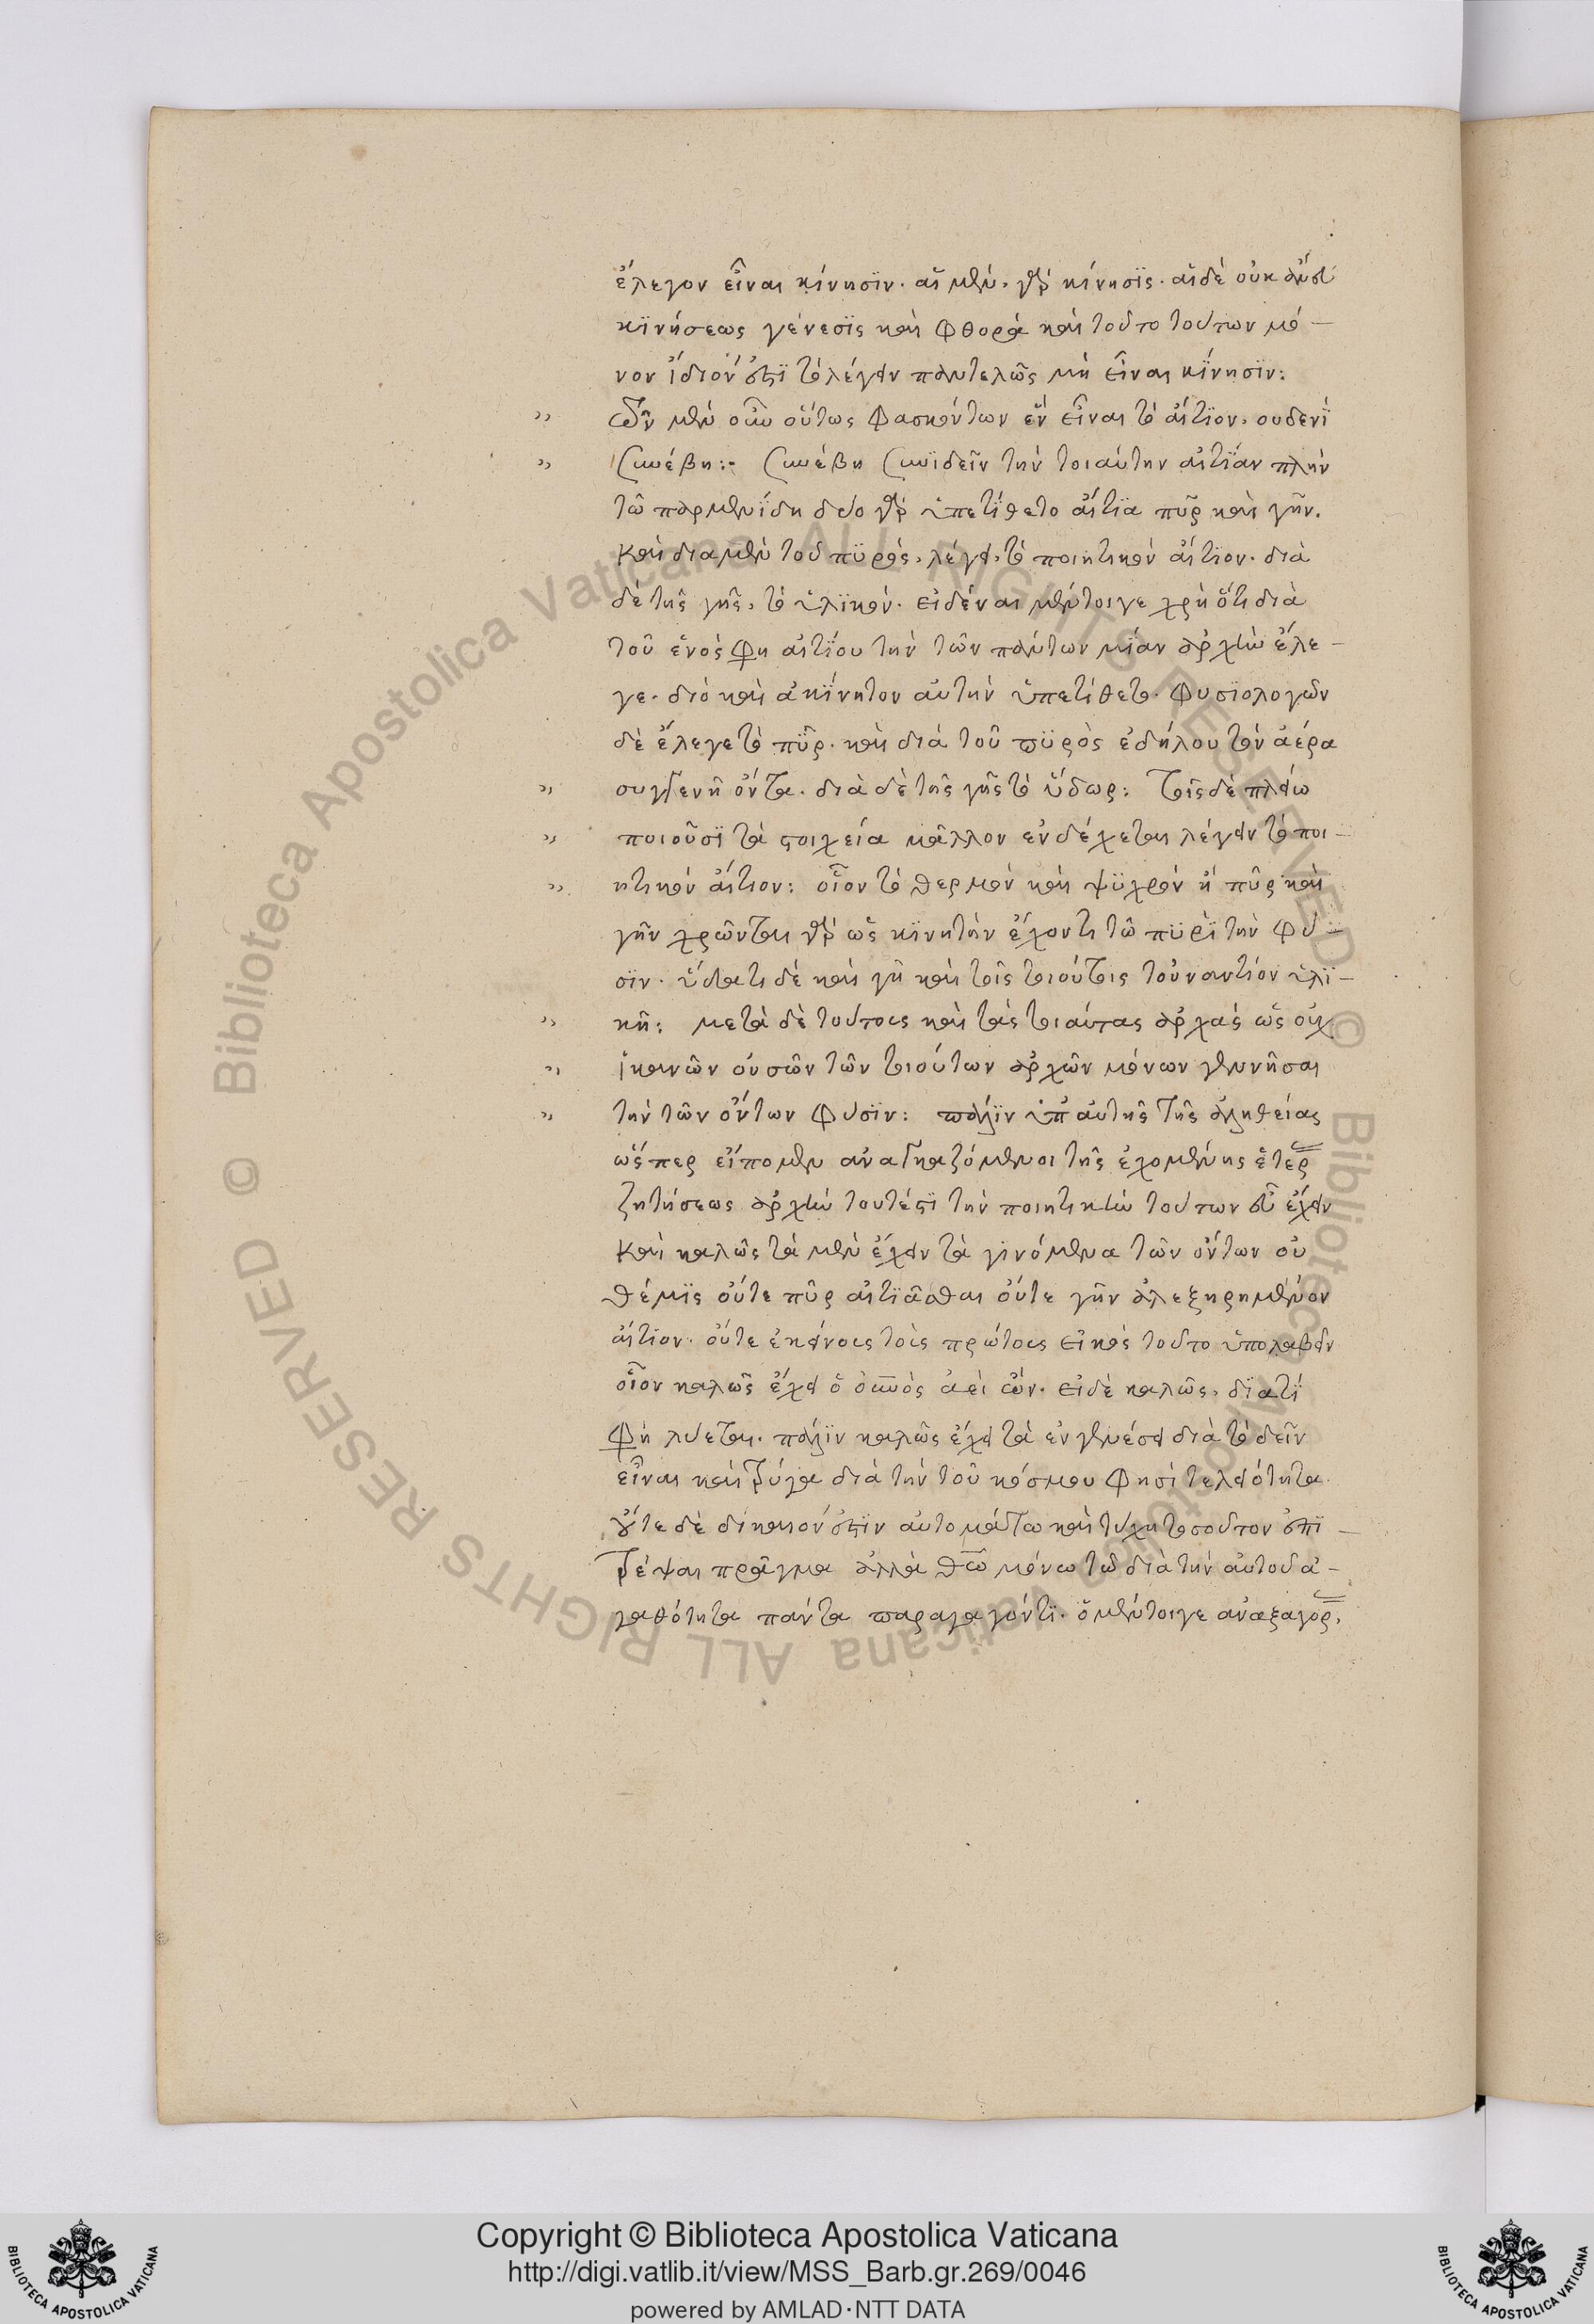 ἔλεγον εἶναι κίνησϊν. αἳ μὲν. γὰρ κίνησϊς. αἳ δὲ οὐκ ἄνευ
κϊνήσεως γένεσϊς καὶ φθορὰ καὶ τοῦτο τούτων μό-
νον ἴδιόν ἐστϊ τὸ λέγειν παντελῶς μὴ εἶναι κΐνησϊν:
Τῶν μὲν οὖν οὕτως φασκόντων ἓν εἶναι τὸ αἴτϊον, ουδενῒ
συνέβη:- συνέβη συνϊδεῖν τὴν τοιαύτην αἰτΐαν πλὴν
τῶ παρμενΐδη δύο γὰρ ὑπετΐθετο αἴτϊα πῦρ καὶ γῆν.
καὶ διὰ μὲν τοῦ πϋρός, λέγει, τὸ ποιητικὸν αἴτϊον. διὰ
δὲ τῆς γῆς, τὸ ὑλϊκόν. εἰδέναι μέντοιγε χρὴ ὅτι διὰ
τοῦ ἑνὸς φη αἰτΐου τὴν τῶν πάντων μίαν ἀρχὴν ἔλε-
γε. διὸ καὶ ἀκΐνητον αὐτὴν ὑπετίθετο. φυσϊολογῶν
δὲ ἔλεγε τὸ πῦρ. καὶ διὰ τοῦ πϋρὸς ἐδήλου τὸν ἀέρα
συγγενῆ ὄντα. διὰ δὲ τῆς γῆς τὸ ὕδωρ: τοῖς δὲ πλείω
ποιοῦσϊ τὰ στοιχεία μᾶλλον ενδέχεται λέγειν τὸ ποι-
ητικὸν αἴτιον: οἷον τὸ θερμὸν καὶ ψϋχρὸν ἢ πῦρ καὶ
γῆν χρῶνται γὰρ ὡς κϊνητὴν ἔχοντι τῶ πϋρῒ τὴν φύ-
σϊν. ὕδατι δὲ καὶ γῆ καὶ τοῖς τοιούτοις τοὐναντίον ὑλϊ-
κῆ: μετὰ δὲ τούτους καὶ τὰς τοιαύτας ἀρχὰς ὡς οὐχ
ἱκανῶν οὐσῶν τῶν τοιούτων ἀρχῶν μόνων γεννῆσαι
τὴν τῶν ὄντων φύσϊν: πάλϊν ὑπ' αὐτῆς τῆς ἀληθείας
ὥσπερ εἴπομεν αναγκαζόμενοι τῆς ἐχομένης ἕτερ
ζητήσεως ἀρχὴν τουτέστϊ τὴν ποιητικὴν τούτων εὖ ἔχειν
καὶ καλῶς τὰ μὲν ἔχειν τὰ γινόμενα τῶν ὄντων οὐ
θέμϊς οὔτε πῦρ αἰτϊᾶσθαι οὔτε γῆν ἀλεξηρημένον
αἴτιον. οὔτε ἐκείνους τοὺς πρώτους εἰκὸς τοῦτο ὑπολαβεῖν
οἷον καλῶς ἔχει ὁ οὐνὸς ἀεὶ ὤν. εἰ δὲ καλῶς, δϊατΐ
φὴ λύεται. πάλϊν καλῶς ἔχει τὰ εν γενέσει διὰ τὸ δεῖν
εἶναι καὶ τρύγα διὰ τὴν τοῦ κόσμου φησὶ τελειότητα.
οὔτε δὲ δίκαιόν ἐστϊν αὐτομάτω καὶ τύχη τοσοῦτον ἐπϊ-
τρέψαι πρᾶγμα ἀλλὰ θω μόνω τῶ διὰ τὴν αὐτοῦ ἀ-
γαθότητα πάντα παραγαγόντϊ. ὁ μέντοιγε ἀναξαγόρ.
Copyright © Biblioteca Apostolica Vaticana
http://digi.vatlib.it/view/MSS_Barb.gr.269/0046
powered by AMLAD·NTT DATA